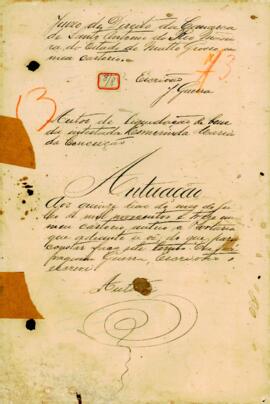 Juizo de Direito da Comarca
de Santo Antonio do Rio Madei
ra, do Estado de Matto Grosso, em
meu cartorio.
73
Escrivão
Guerra
Autos de Liquidação de bens
da intestada Esmerinda Maria
da Conceição
Autuação
Aos quinze dias do mez de ju
de mil novecentos e treze em
meu cartorio autuo a Portaria
que adiante se vê; do que para
constar faço este termo. Eu
Guerra, Escrivão o
escrevi